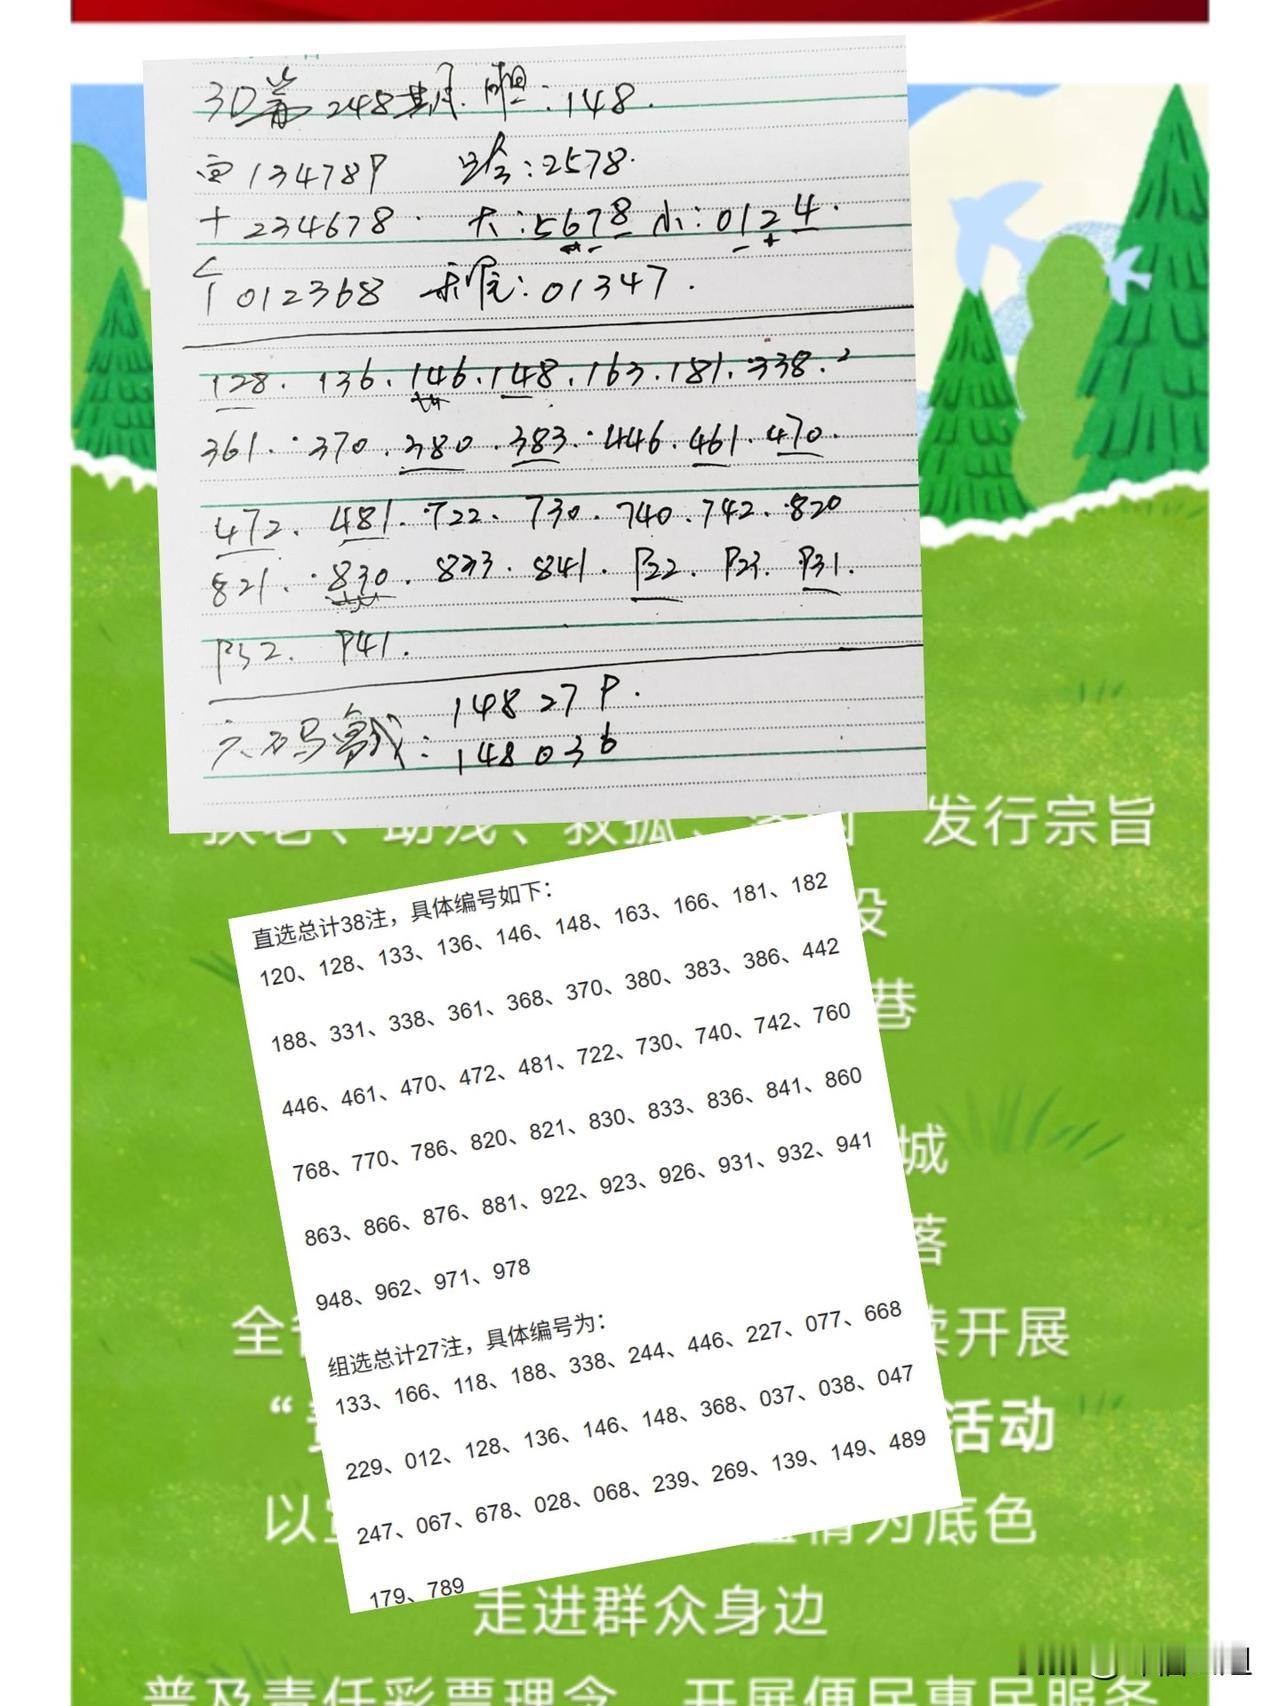 3D第248期. 胆:148.
百134789 跨:2578.
十234678. 大:5678 小:0124.
个012368 和尾:01347.
128. 136. 146. 148. 163. 181. 338.
361. 370. 380. 383. 446. 461. 470.
472. 481. 722. 730. 740. 742. 820
821. 830. 833. 841. 922. 923. 931.
932. 941.
六码离线: 148279.
148036
扶老、助残、救孤、济困 发行宗旨
直选总计38注，具体编号如下：
120、128、133、136、146、148、163、166、181、182
188、331、338、361、368、370、380、383、386、442
446、461、470、472、481、722、730、740、742、760
768、770、786、820、821、830、833、836、841、860
863、866、876、881、922、923、926、931、932、941
948、962、971、978
组选总计27注，具体编号为：
133、166、118、188、338、244、446、227、077、668
229、012、128、136、146、148、368、037、038、047
247、067、678、028、068、239、269、139、149、489
179、789
巷
城
落
全 续开展
“ 活动
以 为底色
走进群众身边
普及责任彩票理念 开展便民惠民服务